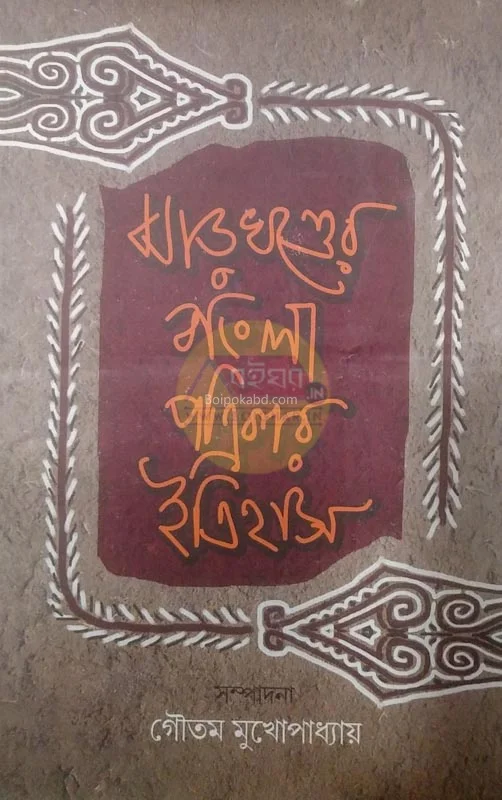 ঝাড়খণ্ডের
বাংলা
পত্রিকার
ইতিহাস
বইঘর.IN
Boipokabd.com
সম্পাদনা
গৌতম মুখোপাধ্যায়